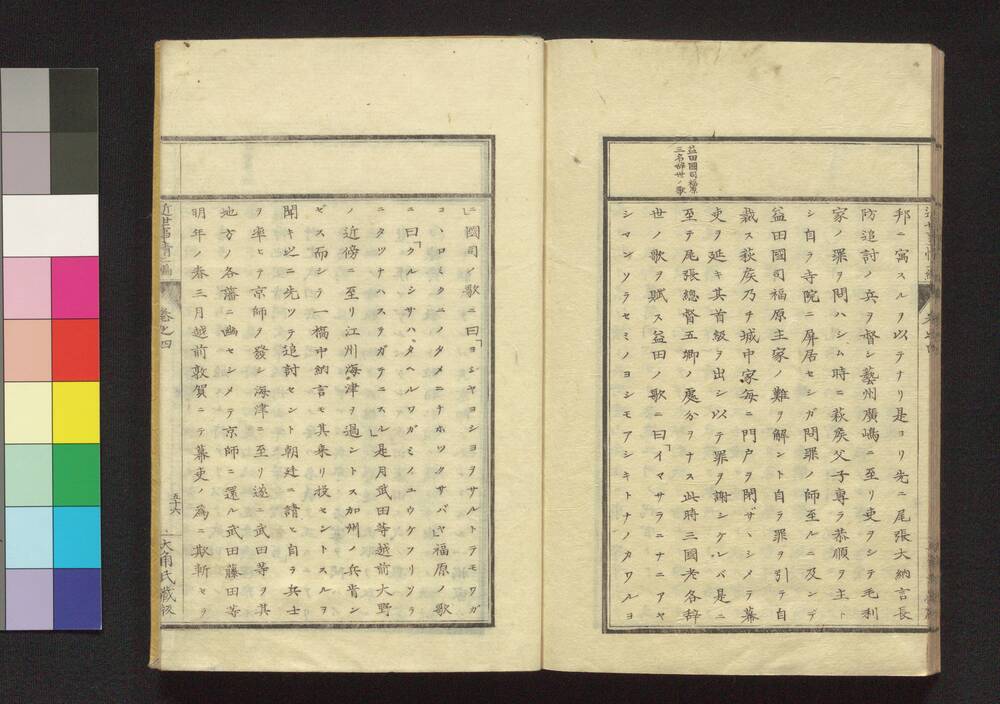 益田國司福原
三名辞世ノ歌
邦ニ寓スルヲ以テナリ是ヨリ先ニ尾張大納言長
防追討ノ兵ヲ督シ藝州廣嶋ニ至リ吏ヲシテ毛利
家ノ罪ヲ問ハシム時ニ萩矦父子専ラ恭順ヲ主ト
シ自ラ寺院ニ屏居セシガ問罪ノ師至ルニ及ンデ
益田國司福原主家ノ難ヲ解ント自ラ罪ヲ引テ自
裁ス萩矦乃チ城中家毎ニ門戸ヲ閉ザヽシメテ幕
吏ヲ延キ其首級ヲ出シ以テ罪ヲ謝シケルバ是ニ
至テ尾張總督五卿ノ處分ヲナス此時三國老各辞
世ノ歌ヲ賦ス益田ノ歌ニ曰「イマサラニナニアヤ
シマンソラセミノヨシモアシキトナノカワルヨ
ニ」國司ノ歌ニ曰「ヨシヤヨシヨヲサルトテモワガ
コヽロミクニノタメニナホツクサバヤ」福原ノ歌
ニ曰「クルシサハタヘルワガミノユウケフリソラ
ニタツナハステガテニスル」是月武田等越前大野
ノ近傍ニ至リ江州海津ヲ過ントス加州ノ兵肯ン
ゼス而シテ一橋中納言モ其来リ投セントスルヲ
聞キ之ニ先ツテ追討セント朝廷ニ請ヒ自ラ兵士
ヲ率ヒテ京師ヲ發シ海津ニ至リ遂ニ武田等ヲ其
地方ノ各藩ニ幽セシメテ京師ニ還ル武田藤田等
明年ノ春三月越前敦賀ニテ幕吏ノ為ニ欺斬セラ
近世事情二編
卷之四
五十六
大角氏藏版